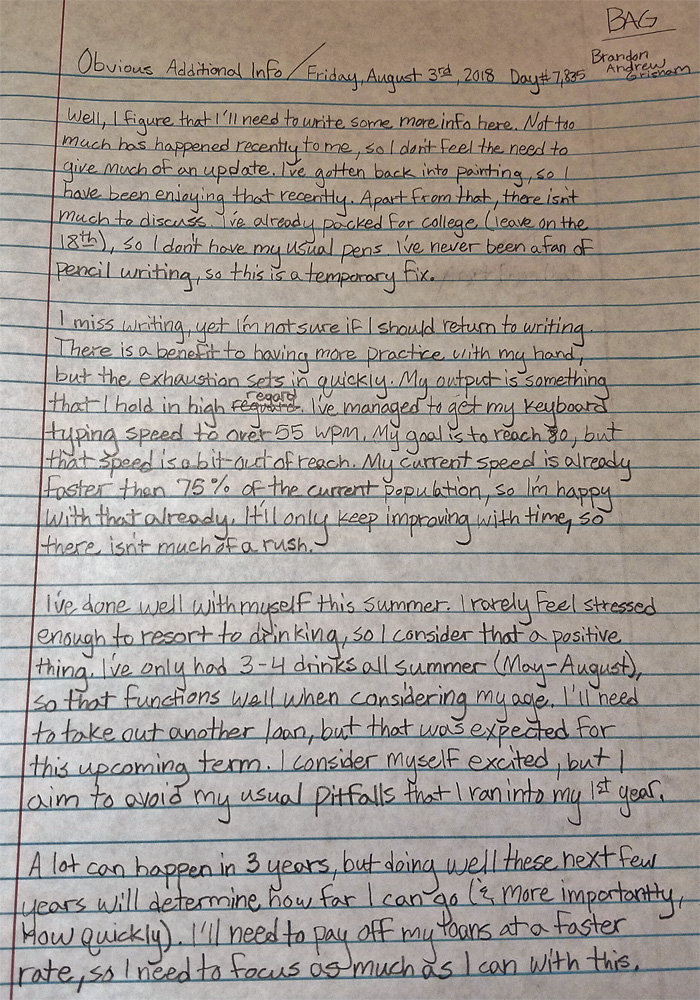 BAG
Obvious Additional Info / Friday, August 3rd, 2018 Day# 7,835
Brandon
Andrew
Grisham
Well, I figure that I'll need to write some more info here. Not too
much has happened recently to me, so I don't feel the need to
give much of an update. I've gotten back into painting, so I
have been enjoying that recently. Apart from that, there isn't
much to discuss. I've already packed for college (leave on the
18th), so I don't have my usual pens. I've never been a fan of
pencil writing, so this is a temporary fix.
I miss writing, yet I'm not sure if I should return to writing.
There is a benefit to having more practice with my hand,
but the exhaustion sets in quickly. My output is something
that I hold in high regard. I've managed to get my keyboard
typing speed to over 55 wpm. My goal is to reach 80, but
that speed is a bit out of reach. My current speed is already
faster than 75% of the current population, so I'm happy
with that already. It'll only keep improving with time, so
there isn't much of a rush.
I've done well with myself this summer. I rarely feel stressed
enough to resort to drinking, so I consider that a positive
thing. I've only had 3-4 drinks all summer (May-August),
so that functions well when considering my age. I'll need
to take out another loan, but that was expected for
this upcoming term. I consider myself excited, but I
aim to avoid my usual pitfalls that I ran into my 1st year.
A lot can happen in 3 years, but doing well these next few
years will determine how far I can go (& more importantly,
How quickly). I'll need to pay off my loans at a faster
rate, so I need to focus as much as I can with this.